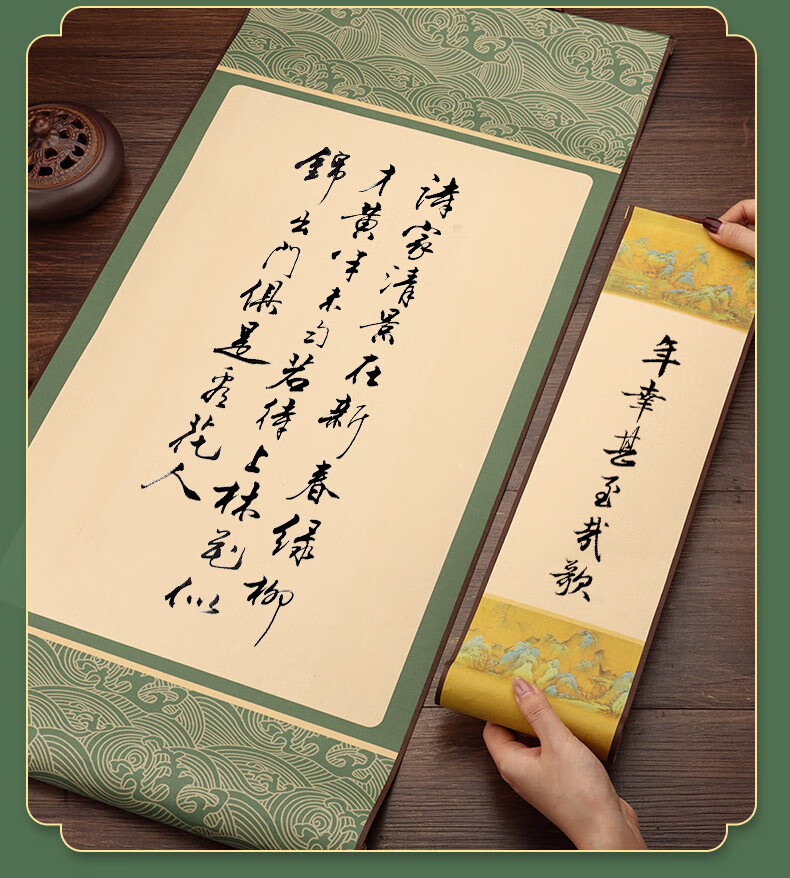 诗家清景在新春绿柳
才黄半未匀若待上林花似
錦出门俱是看花人
年幸甚至哉歌